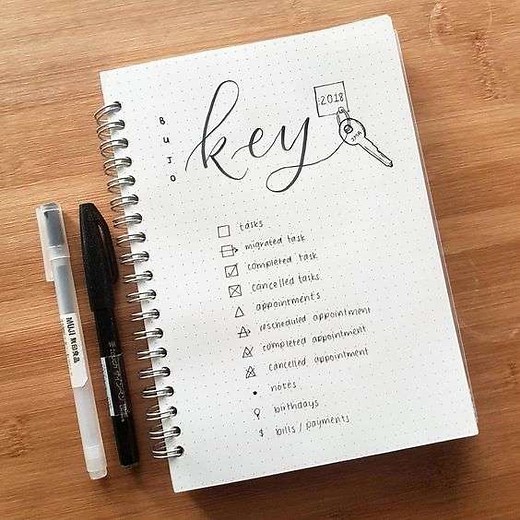 BUJO
key
2018
tasks
migrated task
completed task
cancelled tasks
appointments
rescheduled appointment
completed appointment
cancelled appointment
notes
birthdays
$ bills / payments
MUJI 無印良品